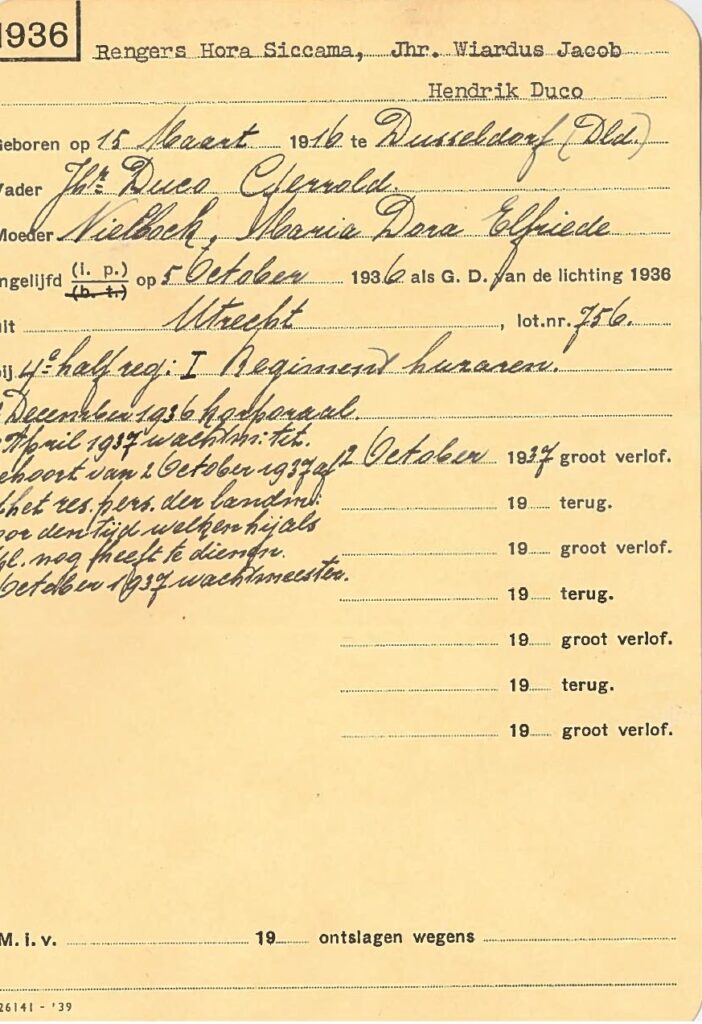 1936
Rengers Hora Siccama, Jhr. Wiardus Jacob
Hendrik Duco
Geboren op 15 Maart 1916 te Dusseldorf (Dld.)
Vader Jhr. Duco Gerrold.
Moeder Nielbock, Maria Dora Elfriede
ngelijfd (i. p.) (b. t.) op 5 October 1936 als G. D. van de lichting 1936
uit Utrecht, lot.nr. 756.
bij 4e half reg: I Regiment huzaren.
December 1936 korporaal.
April 1937 wachtm: tit.
ehoort van 2 October 1937 af
12 October 1937 groot verlof.
het res. pers. der landm:
19 terug.
oor den tijd welken hij als
19 groot verlof.
pl. nog heeft te dienen.
October 1937 wachtmeester.
19 terug.
19 groot verlof.
19 terug.
19 groot verlof.
M. i. v. 19 ontslagen wegens
26141 - '39